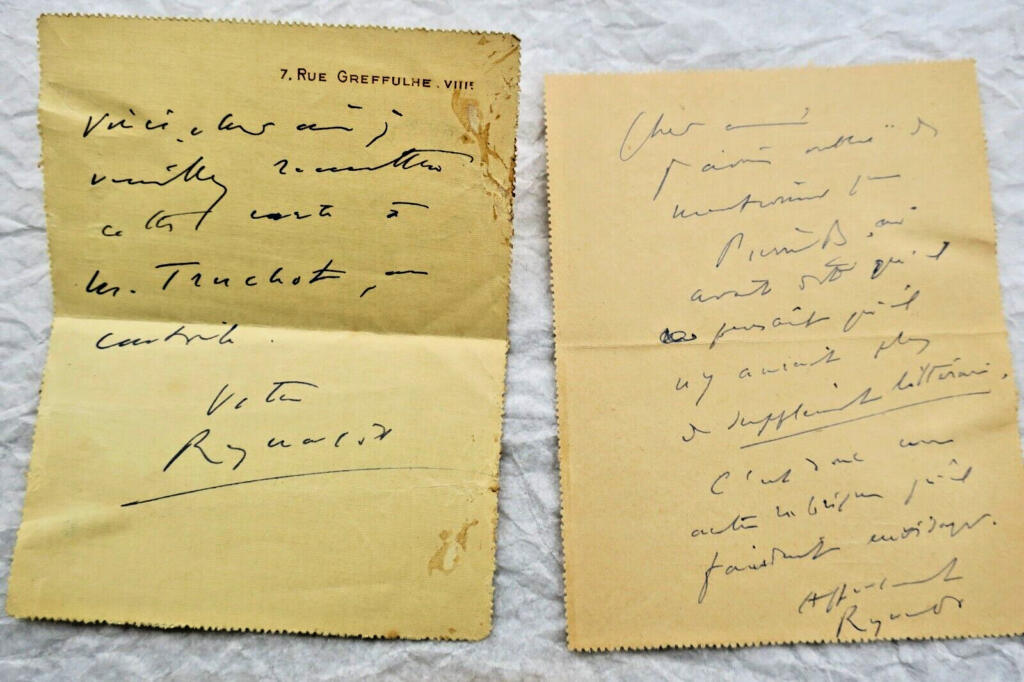 7. RUE GREFFULHE. VIIIE
Voici, cher ami,
veuillez remettre
cette carte à
Mr. Truchot, au
contrôle.
Votre
Reynaldo
Cher ami,
J'avais oublié de
mentionner que
Pierre B, 
avait dit qu'il
pensait qu'il
n'y aurait plus
de supplément littéraire.
C'est donc une
autre rubrique qu'il
faudrait envisager.
Affectueusement
Reynaldo